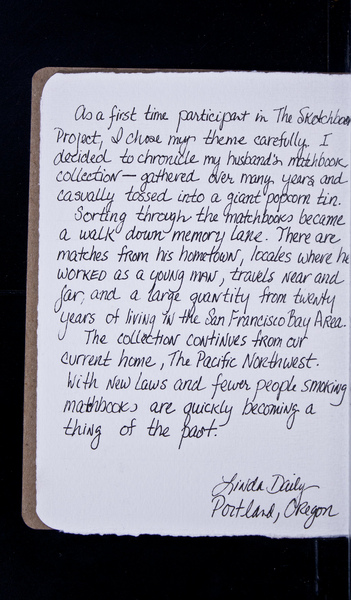 As a first time participant in The Sketchbook
Project, I chose my theme carefully. I
decided to chronicle my husband's matchbook
collection — gathered over many years and
casually tossed into a giant popcorn tin.
Sorting through the matchbooks became
a walk down memory lane. There are
matches from his hometown, locales where he
worked as a young man, travels near and
far, and a large quantity from twenty
years of living in the San Francisco Bay Area.
The collection continues from our
current home, The Pacific Northwest.
With new laws and fewer people smoking
matchbooks are quickly becoming a
thing of the past.
Linda Daily
Portland, Oregon